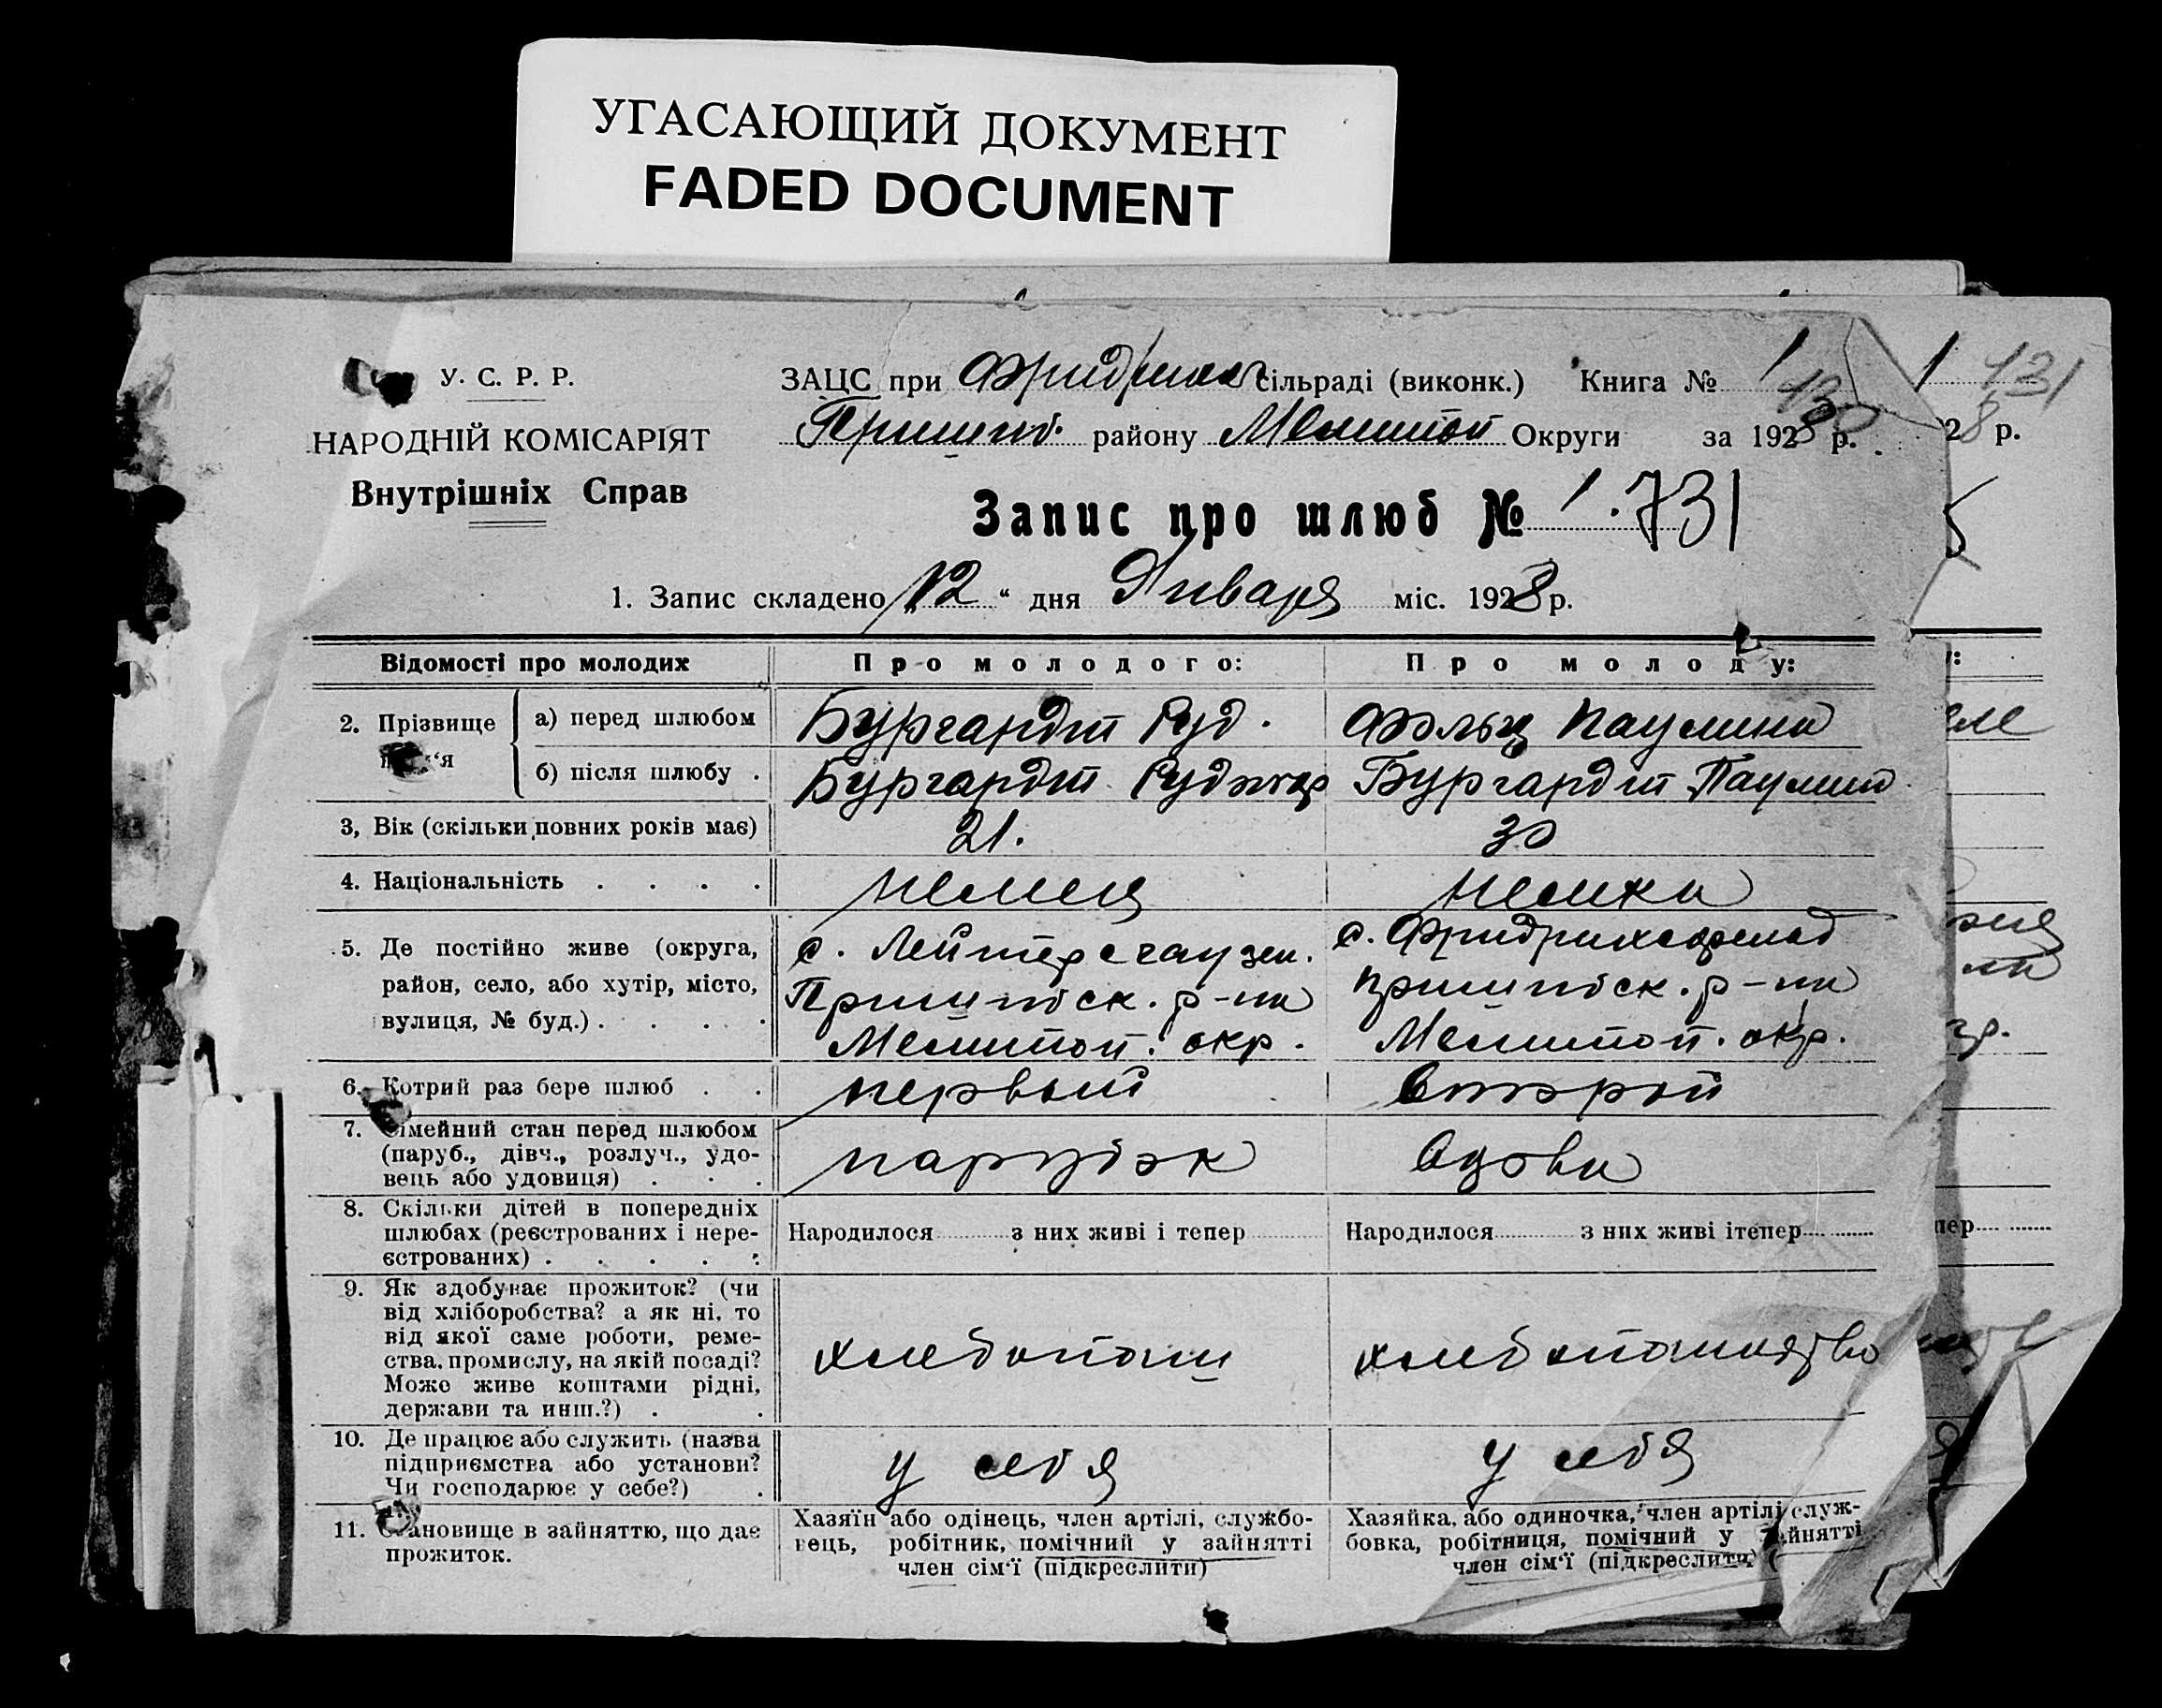 УГАСАЮЩИЙ ДОКУМЕНТ
FADED DOCUMENT
У. С. Р. Р.
НАРОДНІЙ КОМІСАРІЯТ
Внутрішніх Справ
ЗАЦС при Фридрих сільраді (виконк.) Книга № 1
130
Пришиб. району Мелитоп Округи за 1928 р.
1 131
28 р.
Запис про шлюб № 1. 731
1. Запис складено „12“ дня Января міс. 1928 р.
Відомості про молодих Про молодого: Про молоду:
2. Прізвище а) перед шлюбом Бургардт Руд. Фольц Паулина
б) після шлюбу . Бургардт Бургардт Паулина
3, Вік (скільки повних років має) 21. 30
4. Національність . . . . немец немка
5. Де постійно живе (округа, с. Лейтерсгаузен. с. Фридрихсфельд
район, село, або хутір, місто, Пришибск. р-на Пришибск. р-на
вулиця, № буд.) . . . . Мелитоп. окр. Мелитоп. окр.
6. Котрий раз бере шлюб . . первый второй
7. Сімейний стан перед шлюбом
(паруб., дівч., розлуч., удо- парубок вдова
вець або удовиця) . . .
8. Скільки дітей в попередніх
шлюбах (реєстрованих і нере- Народилося з них живі і тепер Народилося з них живі ітепер
єстрованих) . . . . .
9. Як здобуває прожиток? (чи
від хліборобства? а як ні, то
від якої саме роботи, реме-
ства, промислу, на якій посаді? хлебопаш хлебопашество
Може живе коштами рідні,
держави та инш.?) . .
10. Де працює або служить (назва
підприємства або установи? у себя у себя
Чи господарює у себе?) .
11. Становище в зайняттю, що дає Хазяїн або одінець, член артілі, службо- Хазяйка, або одиночка, член артілі служ-
прожиток. вець, робітник, помічний у зайнятті бовка, робітниця, помічний у зайнятті
член сім‘ї (підкреслити) член сім‘ї (підкреслити)